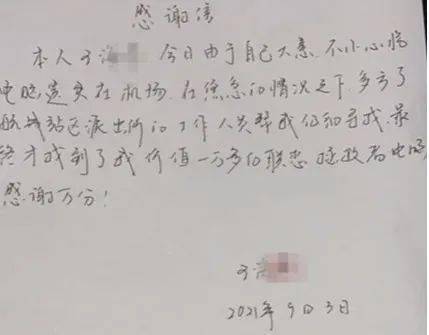 感谢信
本人于海 今日由于自己大意.不小心将
电脑遗失在机场.在焦急的情况之下.多亏了
航站派出所的工作人员帮我仔细寻找.最
终才找到了我价值一万多的联想 拯救者电脑,
感谢万分!
于海
2021年9日3日